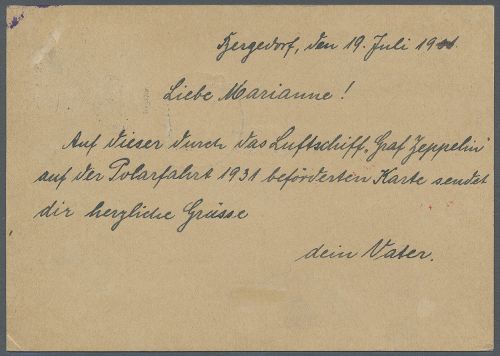 Bergedorf, den 19. Juli 1931
Liebe Marianne!
Auf dieser durch das Luftschiff „Graf Zeppelin"
auf der Polarfahrt 1931 beförderten Karte sendet
dir herzliche Grüsse
dein Vater.